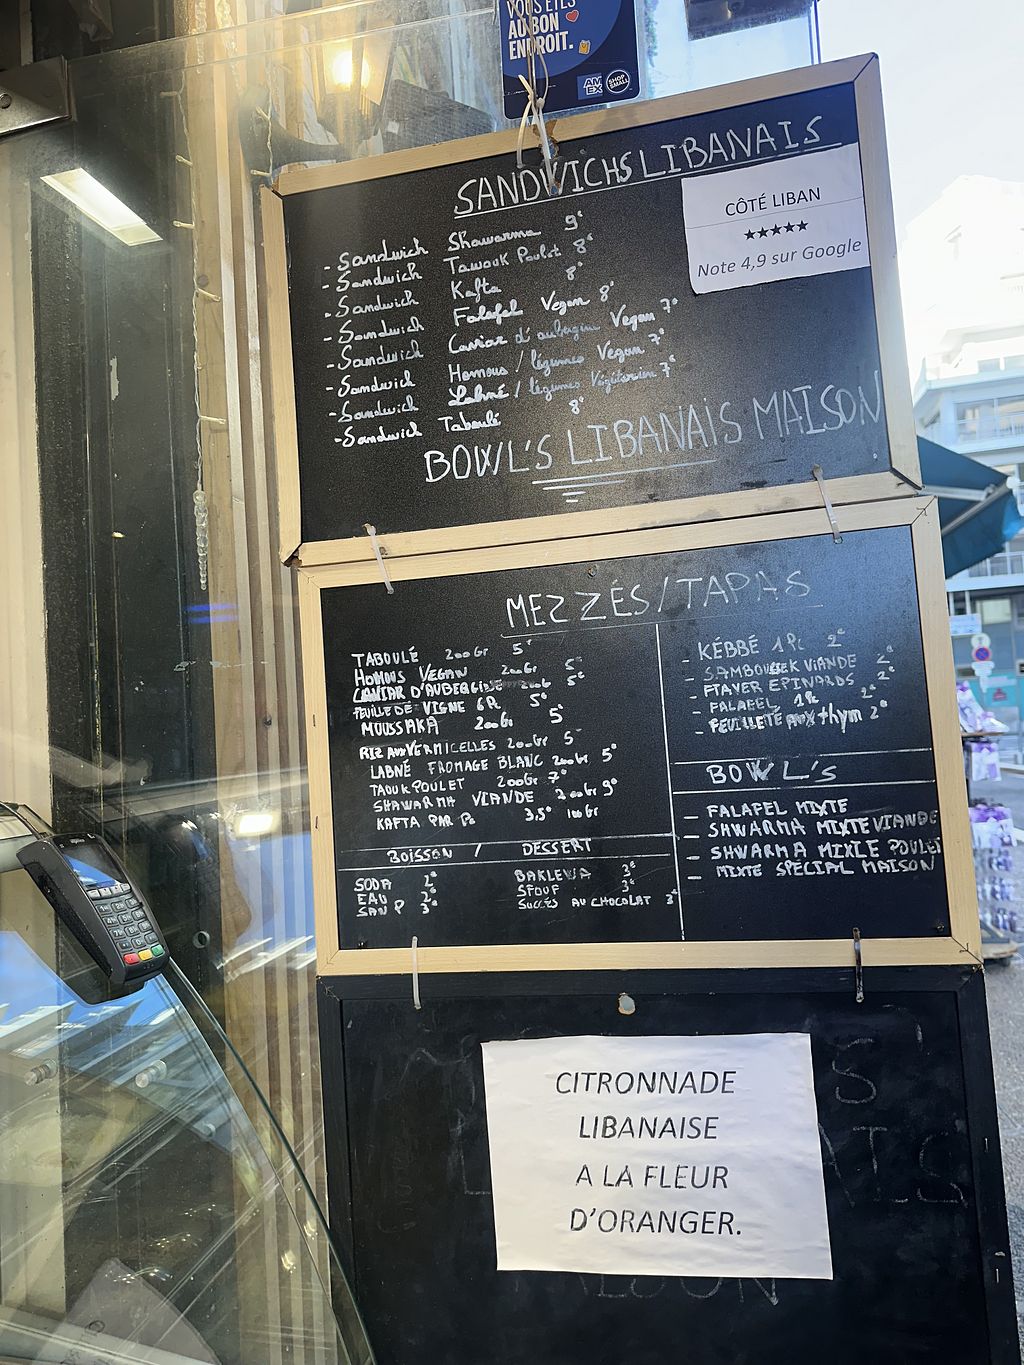 VOUS ÊTES
AU BON
ENDROIT.
AM
EX
SHOP
SMALL
SANDWICHS LIBANAIS
CÔTÉ LIBAN
★★★★★
Note 4,9 sur Google
- Sandwich Shawarma 9€
- Sandwich Taouk Poulet 8€
- Sandwich Kafta 8€
- Sandwich Falafel Vegan 8€
- Sandwich Caviar d'aubergine Vegan 7€
- Sandwich Homous / légumes Vegan 7€
- Sandwich Labné / légumes Végétarien 7€
- Sandwich Taboulé 8€
BOWL'S LIBANAIS MAISON
MEZZÉS/TAPAS
TABOULÉ 200Gr 5€
HOMOUS VEGAN 200Gr 5€
CAVIAR D'AUBERGINE 200Gr 5€
FEUILLE DE VIGNE 6P. 5€
MOUSSAKA 200Gr 5€
RIZ AUX VERMICELLES 200Gr 5€
LABNÉ FROMAGE BLANC 200Gr 5€
TAOUK POULET 200Gr 7€
SHAWARMA VIANDE 200Gr 9€
KAFTA PAR Pc 3,5€ 100Gr
- KÉBBÉ 1Pc 2€
- SAMBOUSEK VIANDE 2€
- FTAYER EPINARDS 2€
- FALAFEL 1Pc 2€
- FEUILLETÉ AUX thym 2€
BOWL'S
- FALAFEL MIXTE
- SHWARMA MIXTE VIANDE
- SHWARMA MIXLE POULET
- MIXTE SPECIAL MAISON
BOISSON / DESSERT
SODA 2€
EAU 2€
SAN P 3€
BAKLEWA 3€
SFOUF 3€
SUCCÈS AU CHOCOLAT 3€
CITRONNADE
LIBANAISE
A LA FLEUR
D'ORANGER.